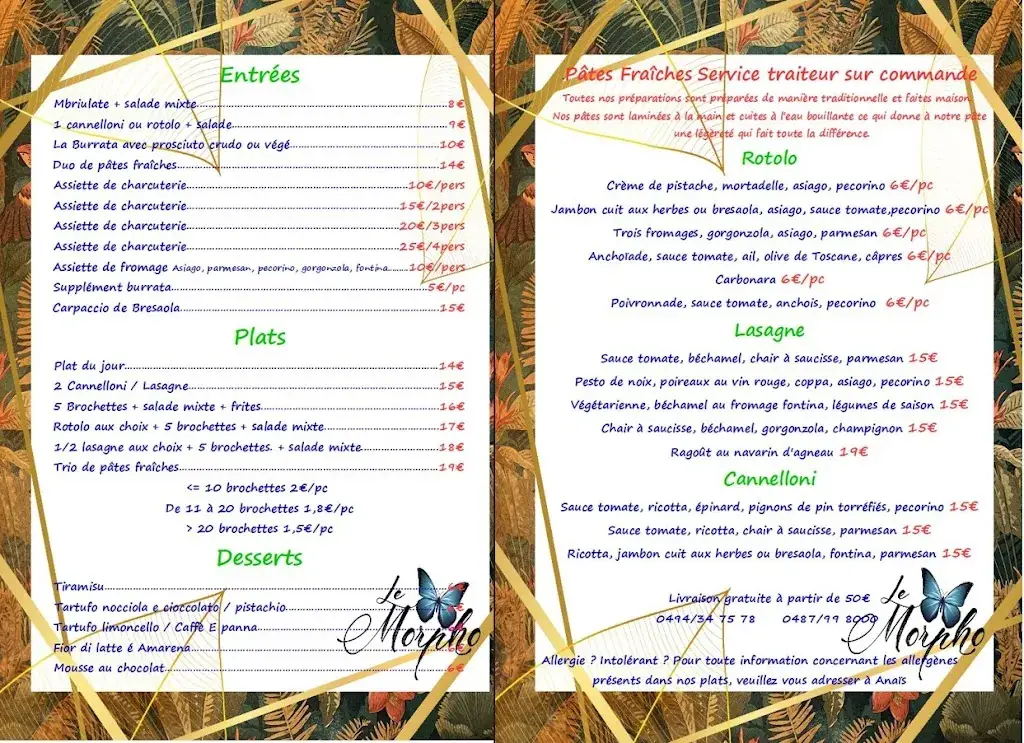 Entrées
Mbriulate + salade mixte........8€
1 cannelloni ou rotolo + salade........9€
La Burrata avec prosciuto crudo ou végé........10€
Duo de pâtes fraîches........14€
Assiette de charcuterie........10€/pers
Assiette de charcuterie........15€/2pers
Assiette de charcuterie........20€/3pers
Assiette de charcuterie........25€/4pers
Assiette de fromage Asiago, parmesan, pecorino, gorgonzola, fontina........10€/pers
Supplément burrata........5€/pc
Carpaccio de Bresaola........15€
Plats
Plat du jour........14€
2 Cannelloni / Lasagne........15€
5 Brochettes + salade mixte + frites........16€
Rotolo aux choix + 5 brochettes + salade mixte........17€
1/2 lasagne aux choix + 5 brochettes. + salade mixte........18€
Trio de pâtes fraîches........19€
<= 10 brochettes 2€/pc
De 11 à 20 brochettes 1,8€/pc
> 20 brochettes 1,5€/pc
Desserts
Tiramisu........6€
Tartufo nocciola e cioccolato / pistachio........
Tartufo limoncello / Caffè E panna........
Fior di latte é Amarena........
Mousse au chocolat........6€
Le
Morpho
Pâtes Fraîches Service traiteur sur commande
Toutes nos préparations sont préparées de manière traditionnelle et faites maison.
Nos pâtes sont laminées à la main et cuites à l'eau bouillante ce qui donne à notre pâte
une légèreté qui fait toute la différence.
Rotolo
Crème de pistache, mortadelle, asiago, pecorino 6€/pc
Jambon cuit aux herbes ou bresaola, asiago, sauce tomate,pecorino 6€/pc
Trois fromages, gorgonzola, asiago, parmesan 6€/pc
Anchoïade, sauce tomate, ail, olive de Toscane, câpres 6€/pc
Carbonara 6€/pc
Poivronnade, sauce tomate, anchois, pecorino 6€/pc
Lasagne
Sauce tomate, béchamel, chair à saucisse, parmesan 15€
Pesto de noix, poireaux au vin rouge, coppa, asiago, pecorino 15€
Végétarienne, béchamel au fromage fontina, légumes de saison 15€
Chair à saucisse, béchamel, gorgonzola, champignon 15€
Ragoût au navarin d'agneau 19€
Cannelloni
Sauce tomate, ricotta, épinard, pignons de pin torréfiés, pecorino 15€
Sauce tomate, ricotta, chair à saucisse, parmesan 15€
Ricotta, jambon cuit aux herbes ou bresaola, fontina, parmesan 15€
Livraison gratuite à partir de 50€
0494/34 75 78 0487/99 8000
Le
Morpho
Allergie ? Intolérant ? Pour toute information concernant les allergènes
présents dans nos plats, veuillez vous adresser à Anaïs